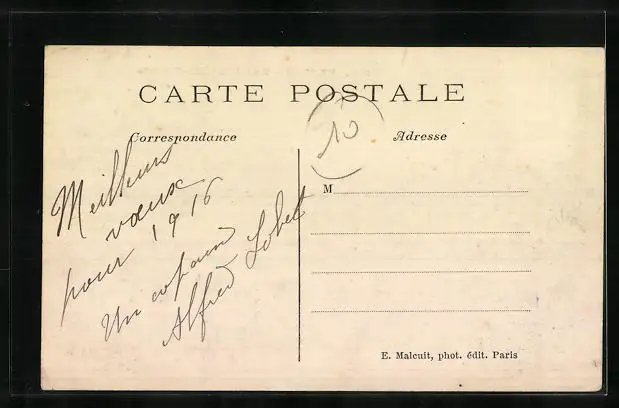 CARTE POSTALE
Correspondance
Adresse
10
M
Meilleurs
vœux
pour 1916
Un copain
Alfred Lobet
E. Malcuit, phot. édit. Paris